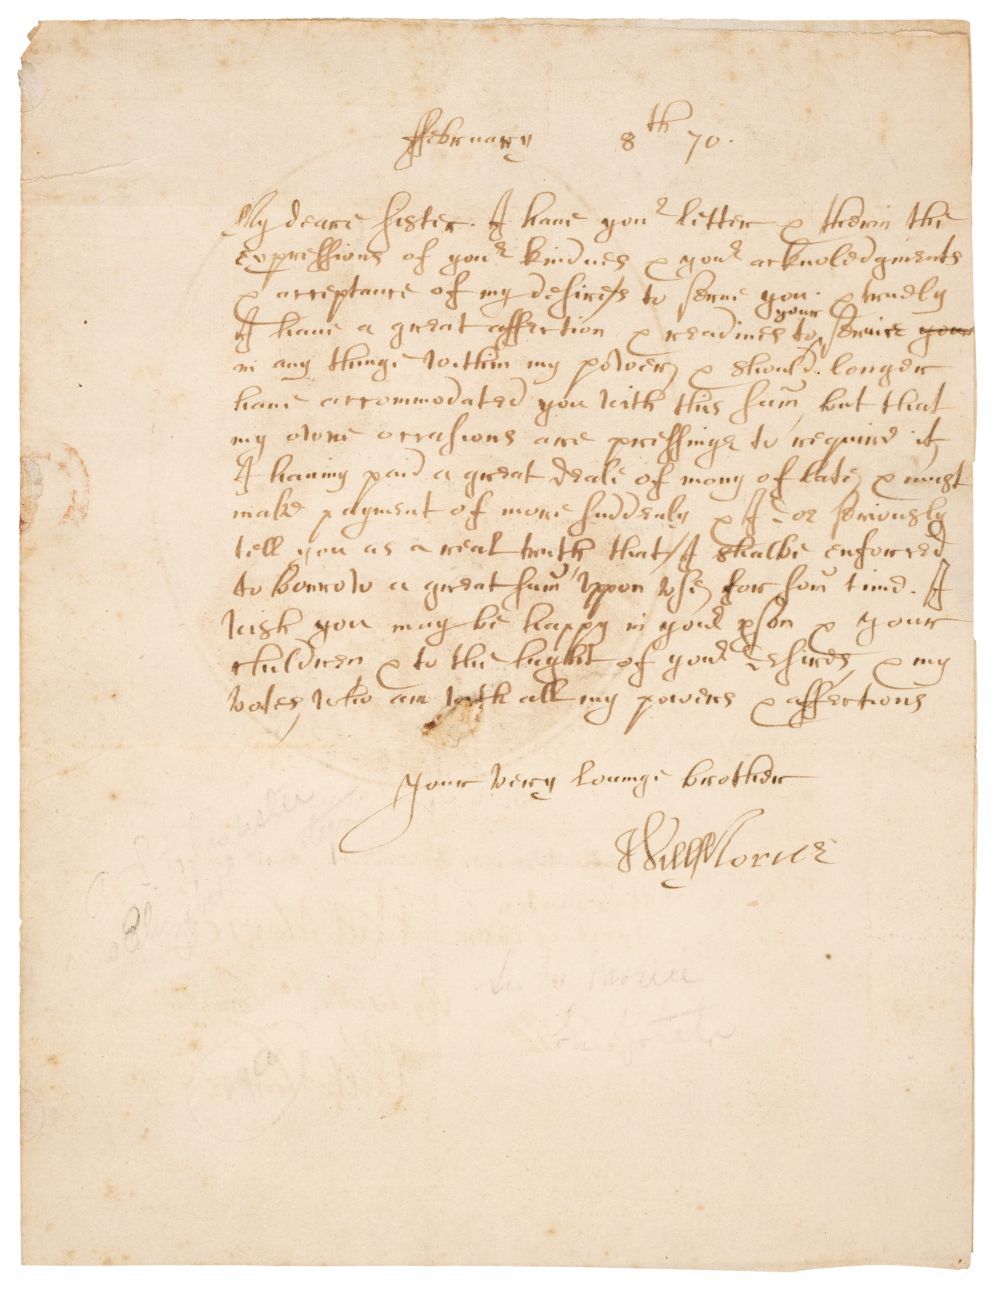 ffebruary 8th 70.
My deare sister. I haue your letter & therin the
expressions of your kindnes & your acknoledgments
& acceptance of my desires to serue you. & truely
I haue a great affection & readines to your seruice your
in any thinge within my power, & should longer
haue accommodated you with this sum, but that
my owne occasions are pressinge to require it,
I hauing paid a great deale of mony of late, & must
make payment of more suddenly & I doe seriously
tell you as a reall truth that I shalbe enforced
to borrow a great sum vppon vse, for som time. I
wish you may be happy in your pson & your
children & to the hight of your desires, & my
votes, who am with all my powers & affections
your very louinge brother
Will Morice
Morice